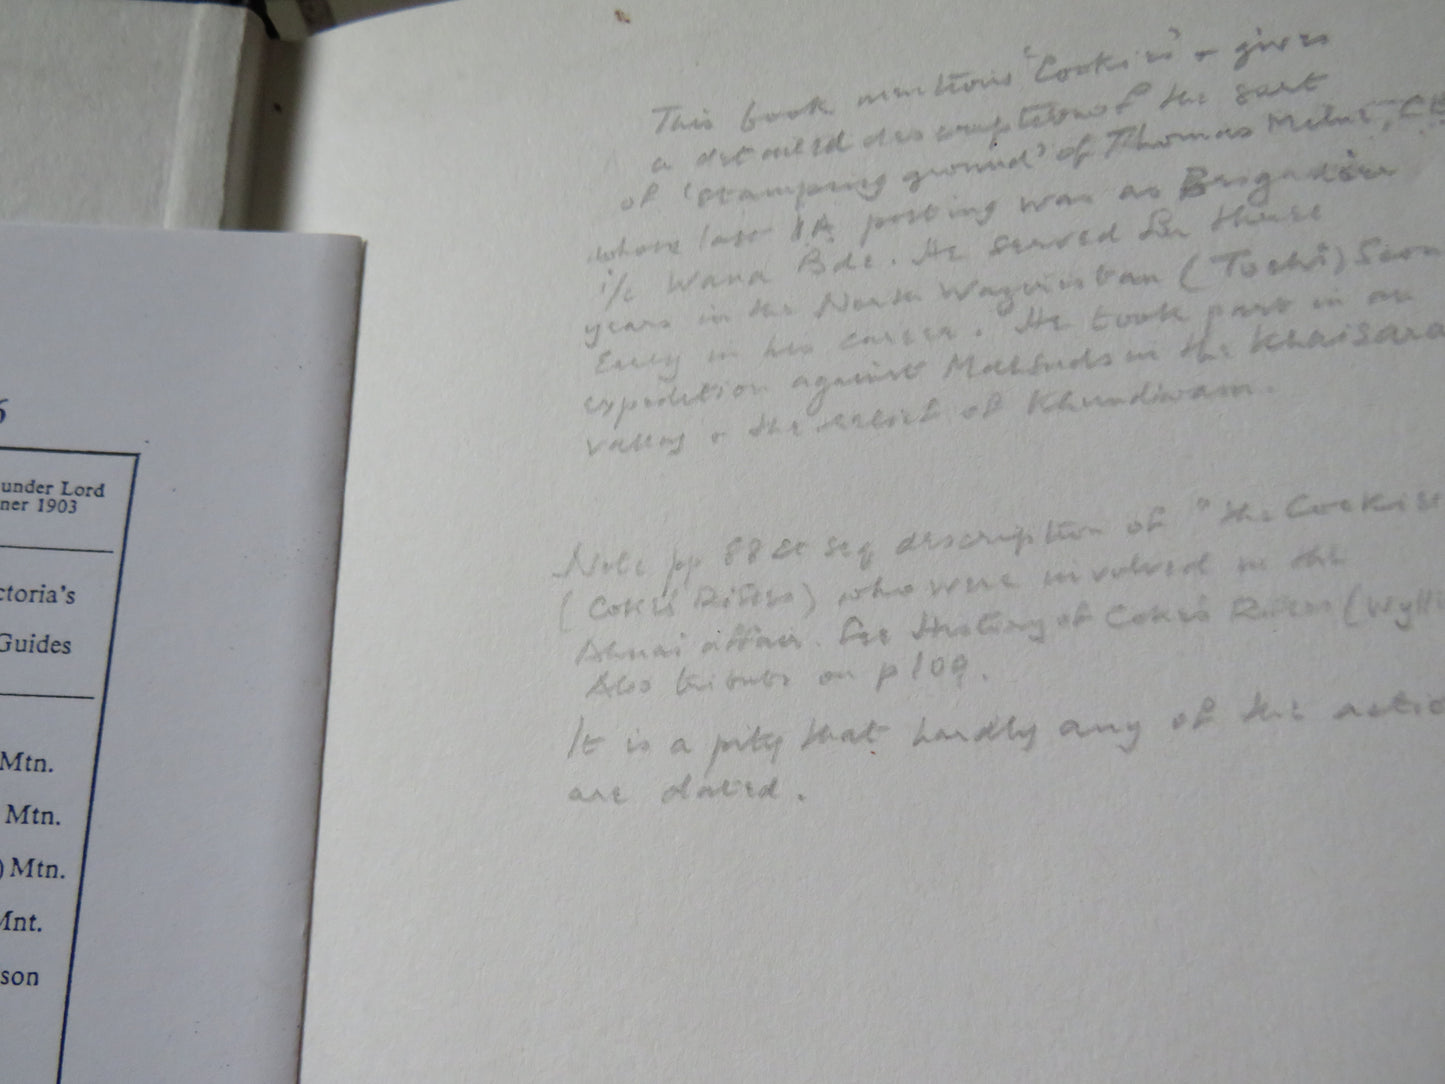 6
under Lord
ner 1903
ctoria's
Guides
Mtn.
Mtn.
) Mtn.
Mnt.
son
This book mentions 'Cookies' + gives
a detailed description of the sort
of 'stamping ground' of Thomas Milne,
whose last IA posting was as Brigadier
i/c Wana Bde. He served for three
years in the North Waziristan (Tochi) Scou
Early in his career. He took part in an
expedition against Mahsuds in the Khaisara
valley + the relief of
Note pp 88 et seq description of "the Cookies
(Coke's Rifles) who were involved in the
affair. See History of Coke's Rifles (Wylli
Also tribute on p 109.
It is a pity that hardly any of the actio
are dated.